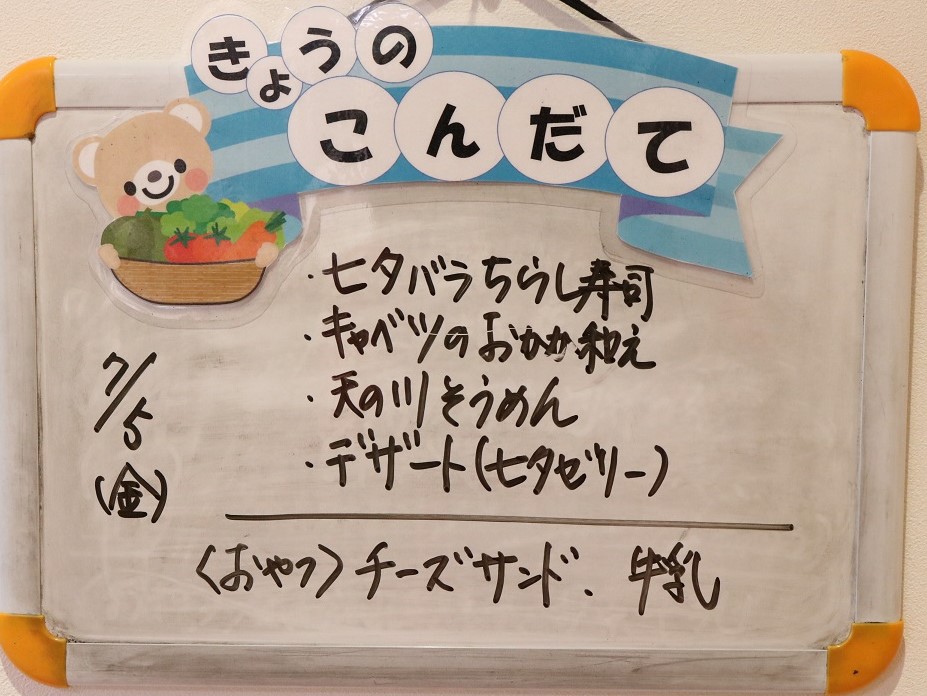 きょうの
こんだて
・七夕バラちらし寿司
・キャベツのおかか和え
・天の川そうめん
・デザート(七夕ゼリー)
7/5
(金)
〈おやつ〉チーズサンド、牛乳